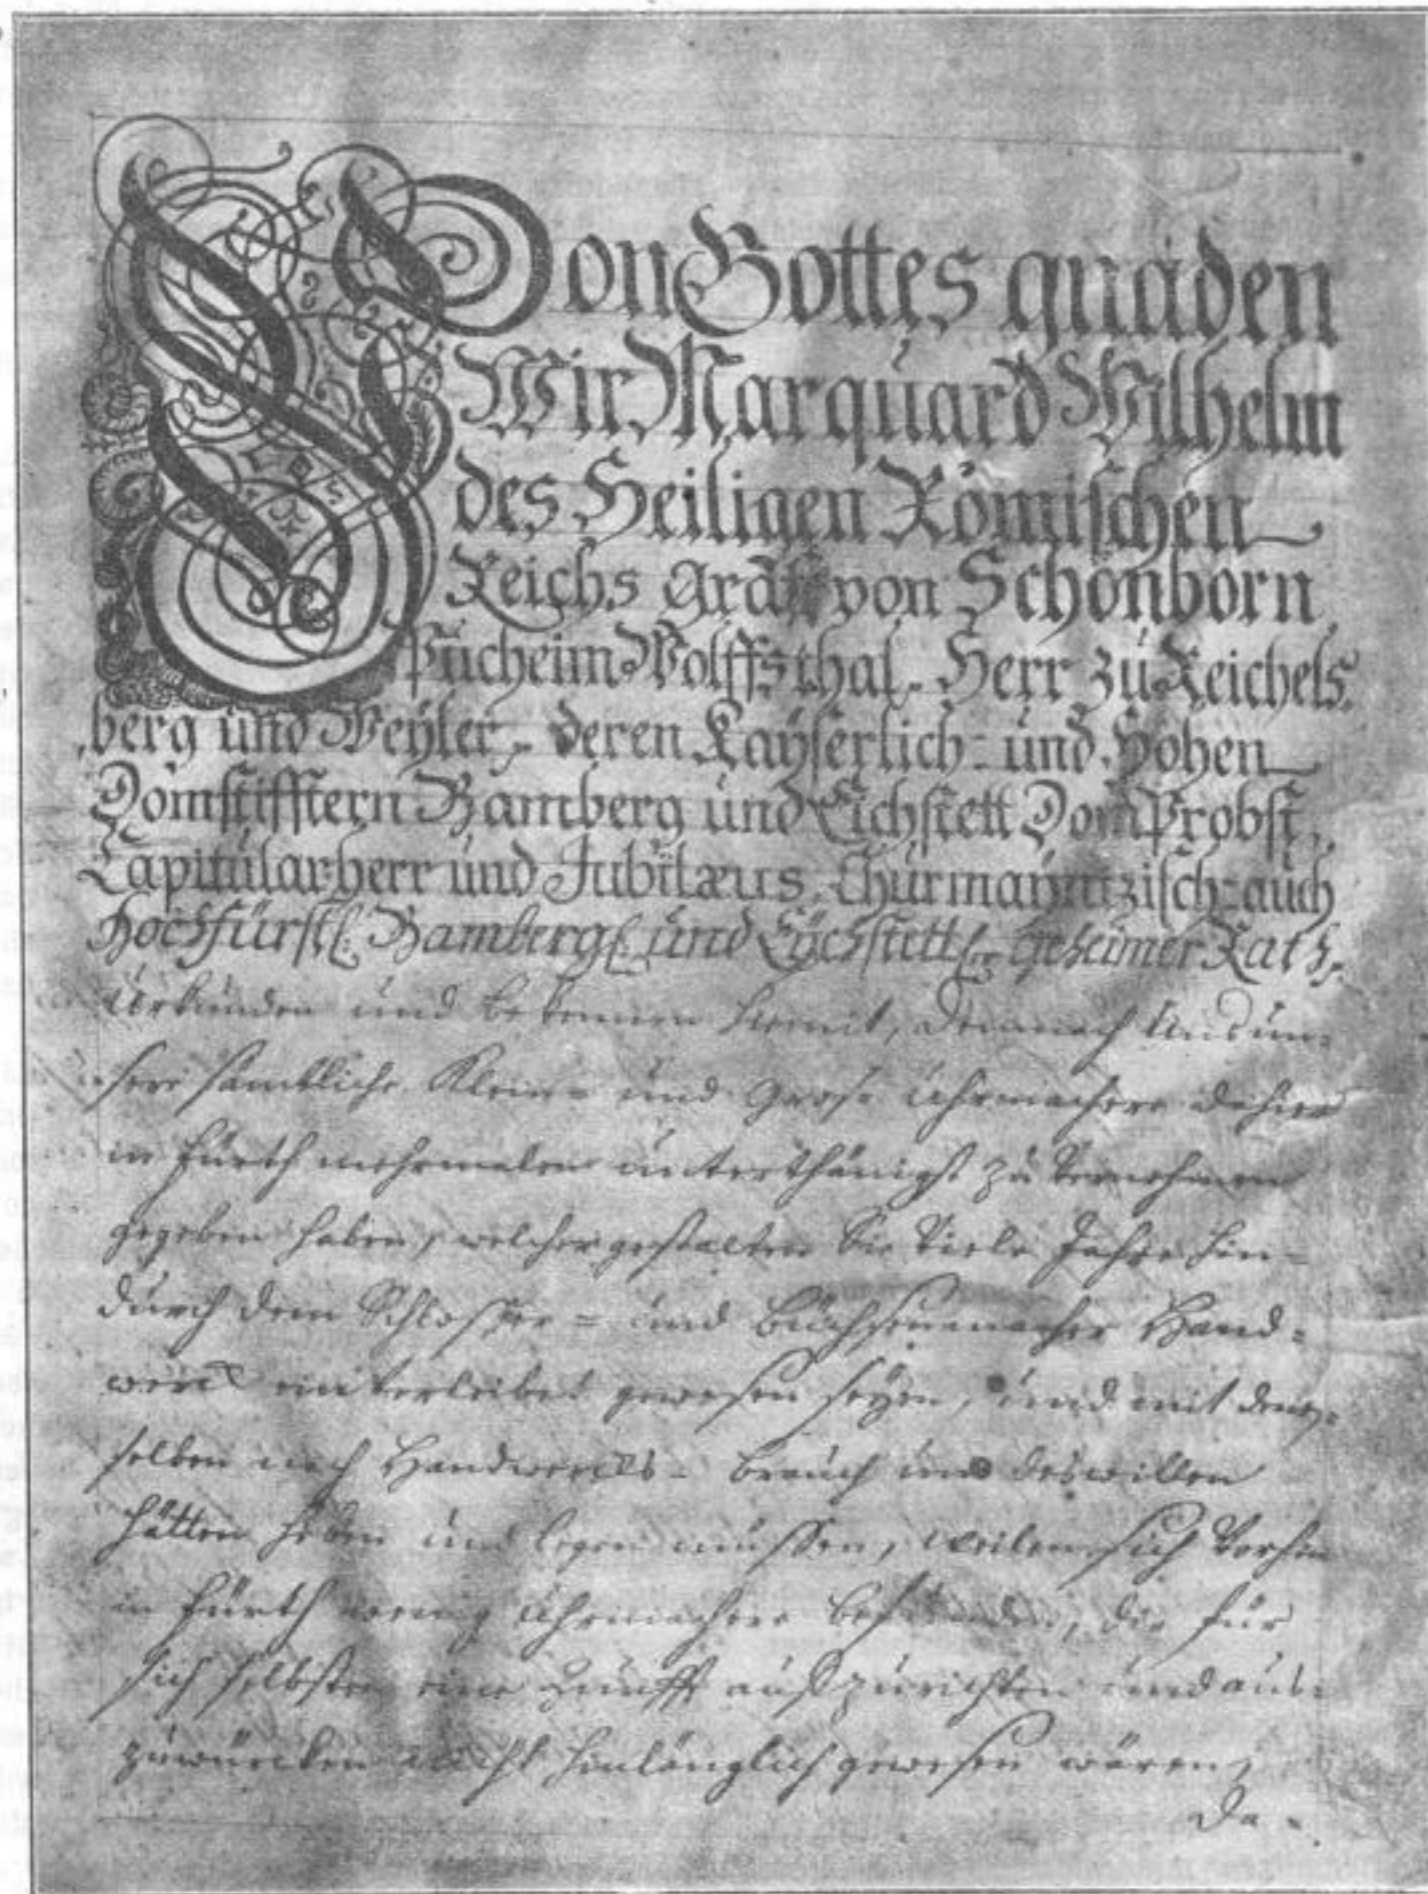 Von Gottes gnaden
Wir Marquard Wilhelm
des Heiligen Römischen
Reichs Graff von Schönborn,
Pucheim, Wolffsthal, Herr zu Reichels,
berg und Weyler, deren Kayserlich- und Hohen
Domstifftern Bamberg und Eichstett DomProbst,
Capitularherr und Jubilæus, Churmayntzisch- auch
Hochfürstl. Bambergl. und Eychstettler Geheimer Rath,
Urkunden und bekennen hiemit, demnach Uns un-
sere sämbtliche Klein- und Grose Uhrmachere dahier
in Fürth mehrmalen unterthänigst zu Vernehmen
gegeben haben, welchergestalten Sie Viele Jahre hin-
durch dem Schlosser- und Büchsenmacher Hand-
werck einverleibet gewesen seyen, und mit dem-
selben nach Handwercks- brauch um deswillen
hätten heben und legen müssen, weilen sich Vorhin
in Fürth wenig Uhrmachere befunden, die für
sich selbsten eine Zunfft aufzurichten und aus-
zuwürcken nicht hinlänglich gewesen wären,
Da-